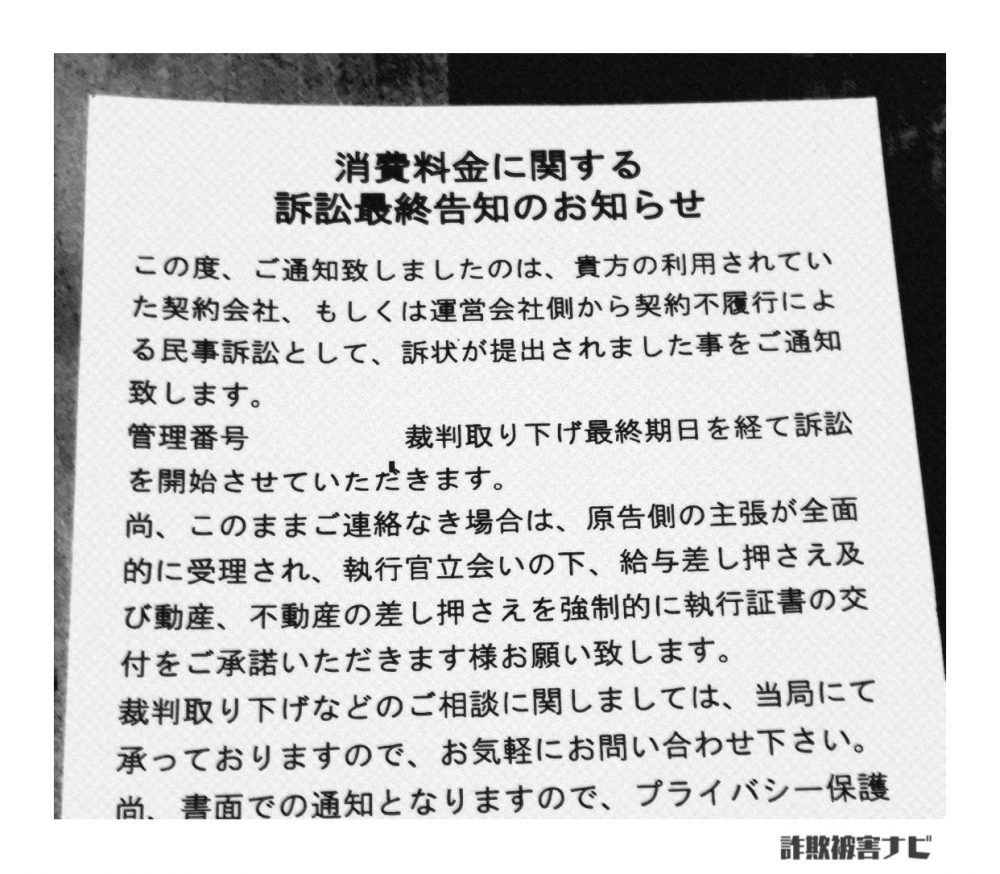 消費料金に関する
訴訟最終告知のお知らせ
この度、ご通知致しましたのは、貴方の利用されてい
た契約会社、もしくは運営会社側から契約不履行によ
る民事訴訟として、訴状が提出されました事をご通知
致します。
管理番号 裁判取り下げ最終期日を経て訴訟
を開始させていただきます。
尚、このままご連絡なき場合は、原告側の主張が全面
的に受理され、執行官立会いの下、給与差し押さえ及
び動産、不動産の差し押さえを強制的に執行証書の交
付をご承諾いただきます様お願い致します。
裁判取り下げなどのご相談に関しましては、当局にて
承っておりますので、お気軽にお問い合わせ下さい。
尚、書面での通知となりますので、プライバシー保護
詐欺被害ナビ